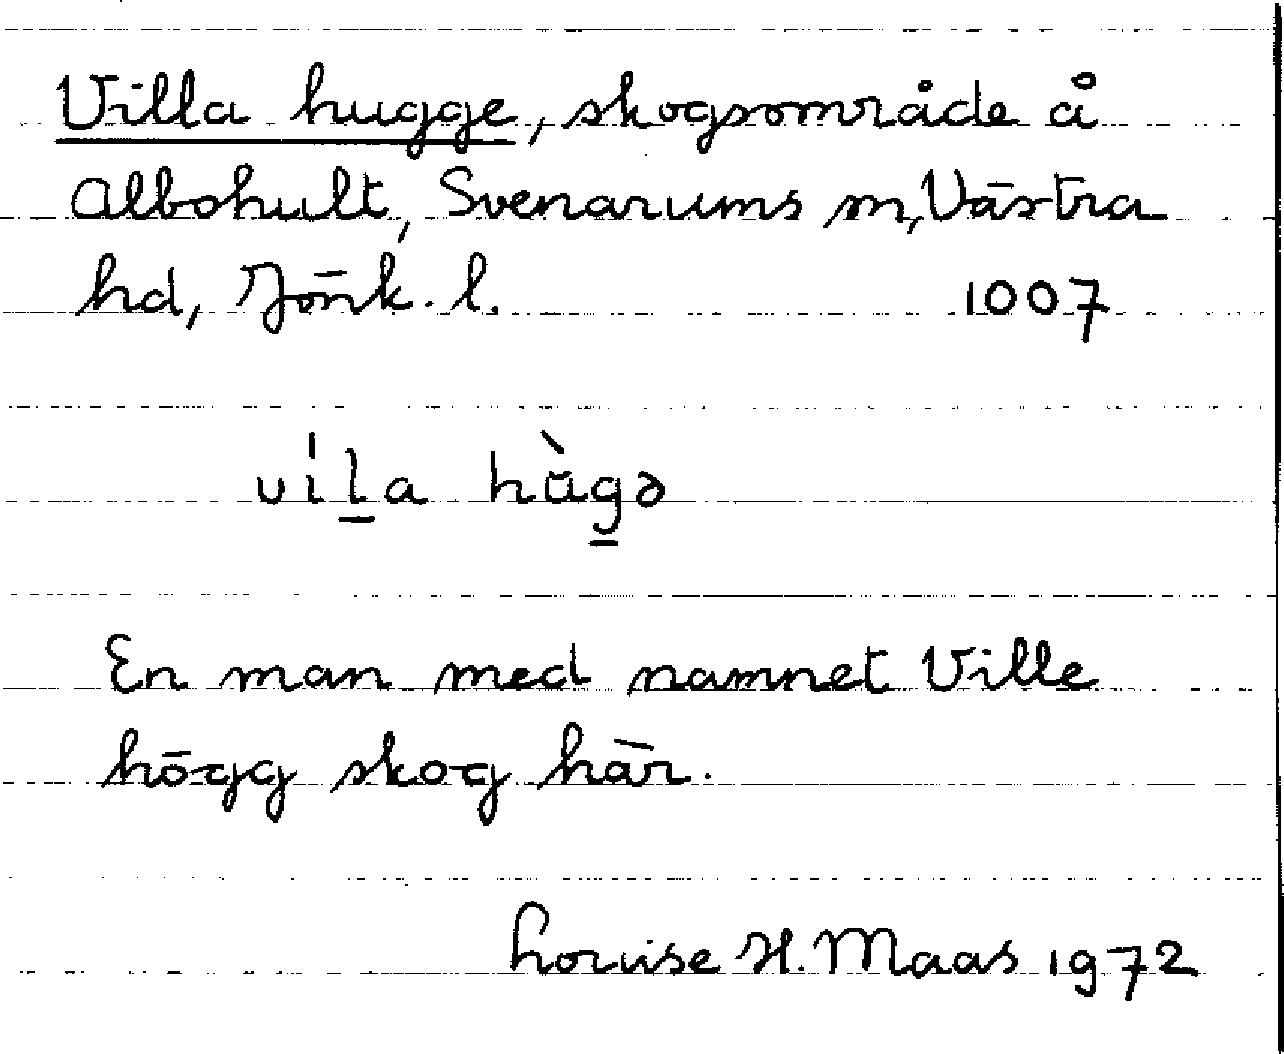 Villa hugge, skogsområde å
Albohult, Svenarums sn, Västra
hd, Jönk. l. 1007
víl̠a hùg̠ə
En man med namnet Ville
högg skog här.
Louise H. Maas 1972